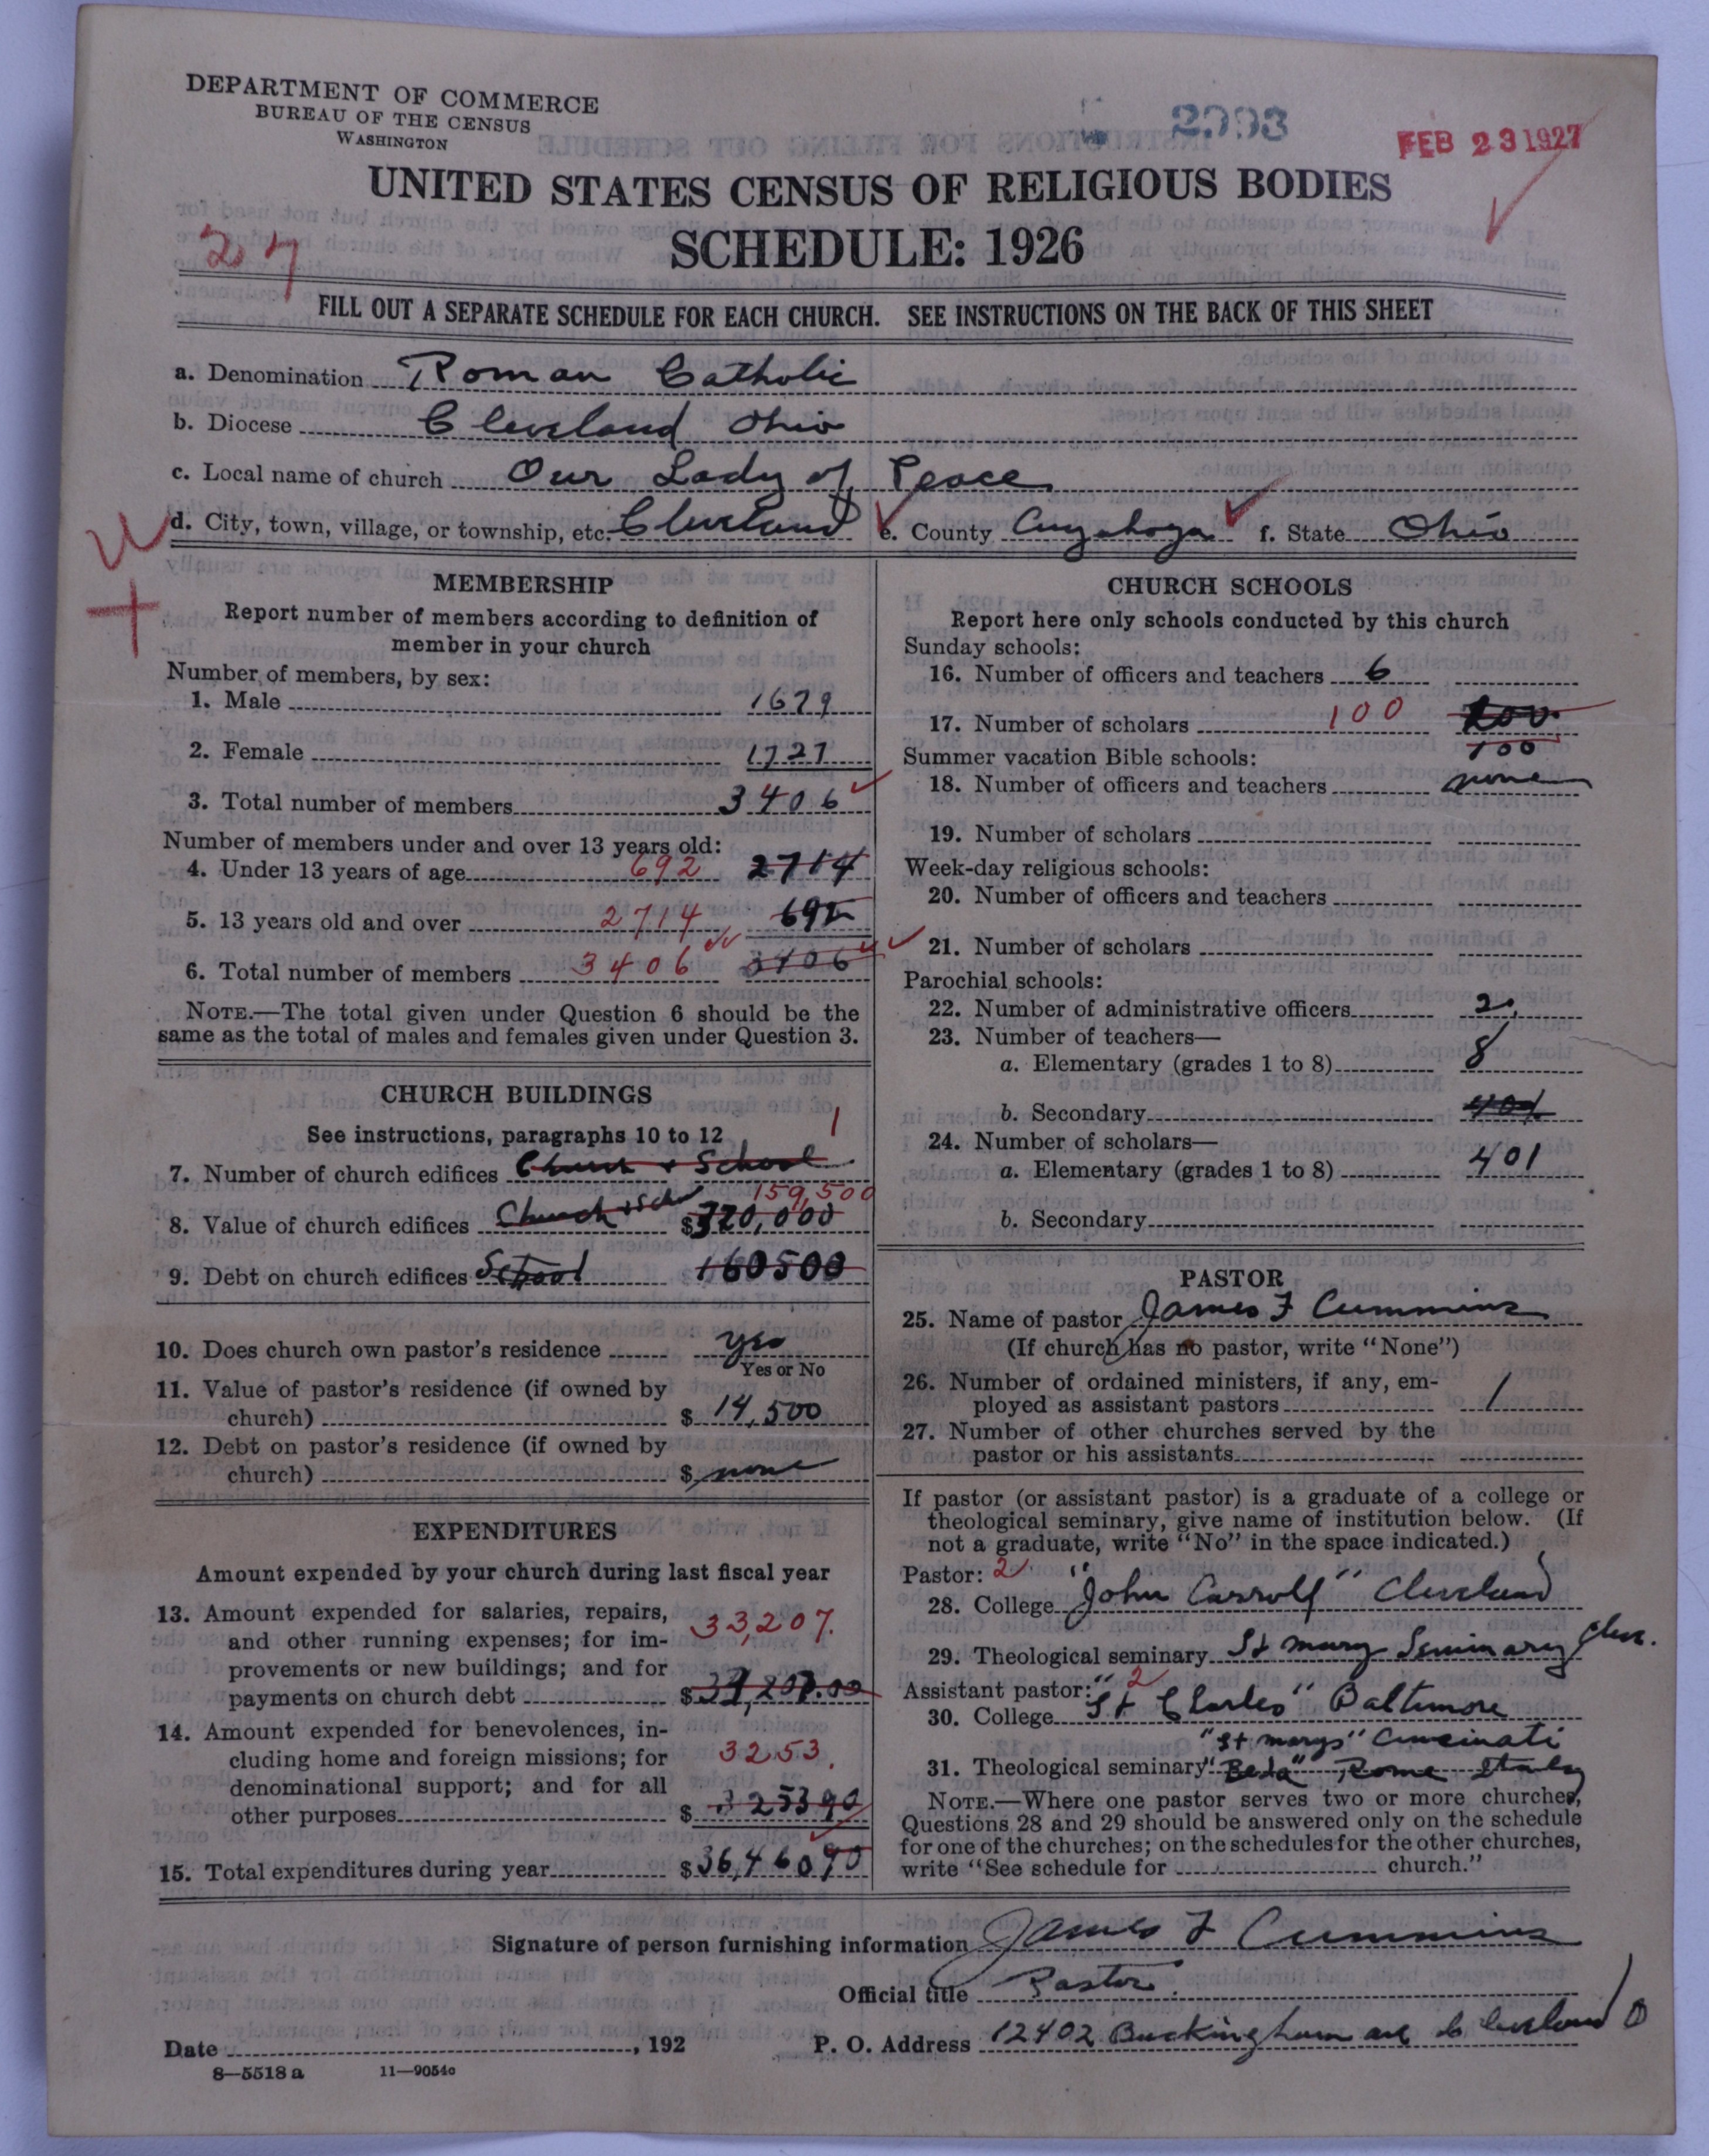 DEPARTMENT OF COMMERCE
BUREAU OF THE CENSUS
WASHINGTON
2993
FEB 23 1927
UNITED STATES CENSUS OF RELIGIOUS BODIES
SCHEDULE: 1926
27
FILL OUT A SEPARATE SCHEDULE FOR EACH CHURCH. SEE INSTRUCTIONS ON THE BACK OF THIS SHEET
a. Denomination Roman Catholic
b. Diocese Cleveland Ohio
c. Local name of church Our Lady of Peace
d. City, town, village, or township, etc. Cleveland e. County Cuyahoga f. State Ohio
MEMBERSHIP
Report number of members according to definition of
member in your church
Number of members, by sex:
1. Male 1679
2. Female 1727
3. Total number of members 3406
Number of members under and over 13 years old:
4. Under 13 years of age 692 2714
5. 13 years old and over 2714 692
6. Total number of members 3406 3406
NOTE.—The total given under Question 6 should be the
same as the total of males and females given under Question 3.
CHURCH BUILDINGS
See instructions, paragraphs 10 to 12 1
7. Number of church edifices Church + School
159,500
8. Value of church edifices Church + Sch $320,000
9. Debt on church edifices School 160500
10. Does church own pastor's residence yes
Yes or No
11. Value of pastor's residence (if owned by
church) $ 14,500
12. Debt on pastor's residence (if owned by
church) $ none
EXPENDITURES
Amount expended by your church during last fiscal year
13. Amount expended for salaries, repairs,
and other running expenses; for im- 33,207.
provements or new buildings; and for
payments on church debt $ 207.00
14. Amount expended for benevolences, in-
cluding home and foreign missions; for 3253
denominational support; and for all
other purposes $ 325390
15. Total expenditures during year $36,46090
CHURCH SCHOOLS
Report here only schools conducted by this church
Sunday schools:
16. Number of officers and teachers 6
17. Number of scholars 100
100
Summer vacation Bible schools:
18. Number of officers and teachers none
19. Number of scholars
Week-day religious schools:
20. Number of officers and teachers
21. Number of scholars
Parochial schools:
22. Number of administrative officers 2
23. Number of teachers—
a. Elementary (grades 1 to 8) 8
b. Secondary 401
24. Number of scholars—
a. Elementary (grades 1 to 8) 401
b. Secondary
PASTOR
25. Name of pastor James F Cummins
(If church has no pastor, write "None")
26. Number of ordained ministers, if any, em-
ployed as assistant pastors 1
27. Number of other churches served by the
pastor or his assistants
If pastor (or assistant pastor) is a graduate of a college or
theological seminary, give name of institution below. (If
not a graduate, write "No" in the space indicated.)
Pastor: 2
28. College "John Carroll" Cleveland
29. Theological seminary St Mary Seminary Clev.
Assistant pastor: 2
30. College "St Charles" Baltimore
"St marys" Cincinati
31. Theological seminary "Beda" Rome Italy
NOTE.—Where one pastor serves two or more churches,
Questions 28 and 29 should be answered only on the schedule
for one of the churches; on the schedules for the other churches,
write "See schedule for church."
Signature of person furnishing information James F Cummins
Official title Pastor
Date , 192 P. O. Address 12402 Buckingham ave Cleveland O
8—5518 a 11—9054c